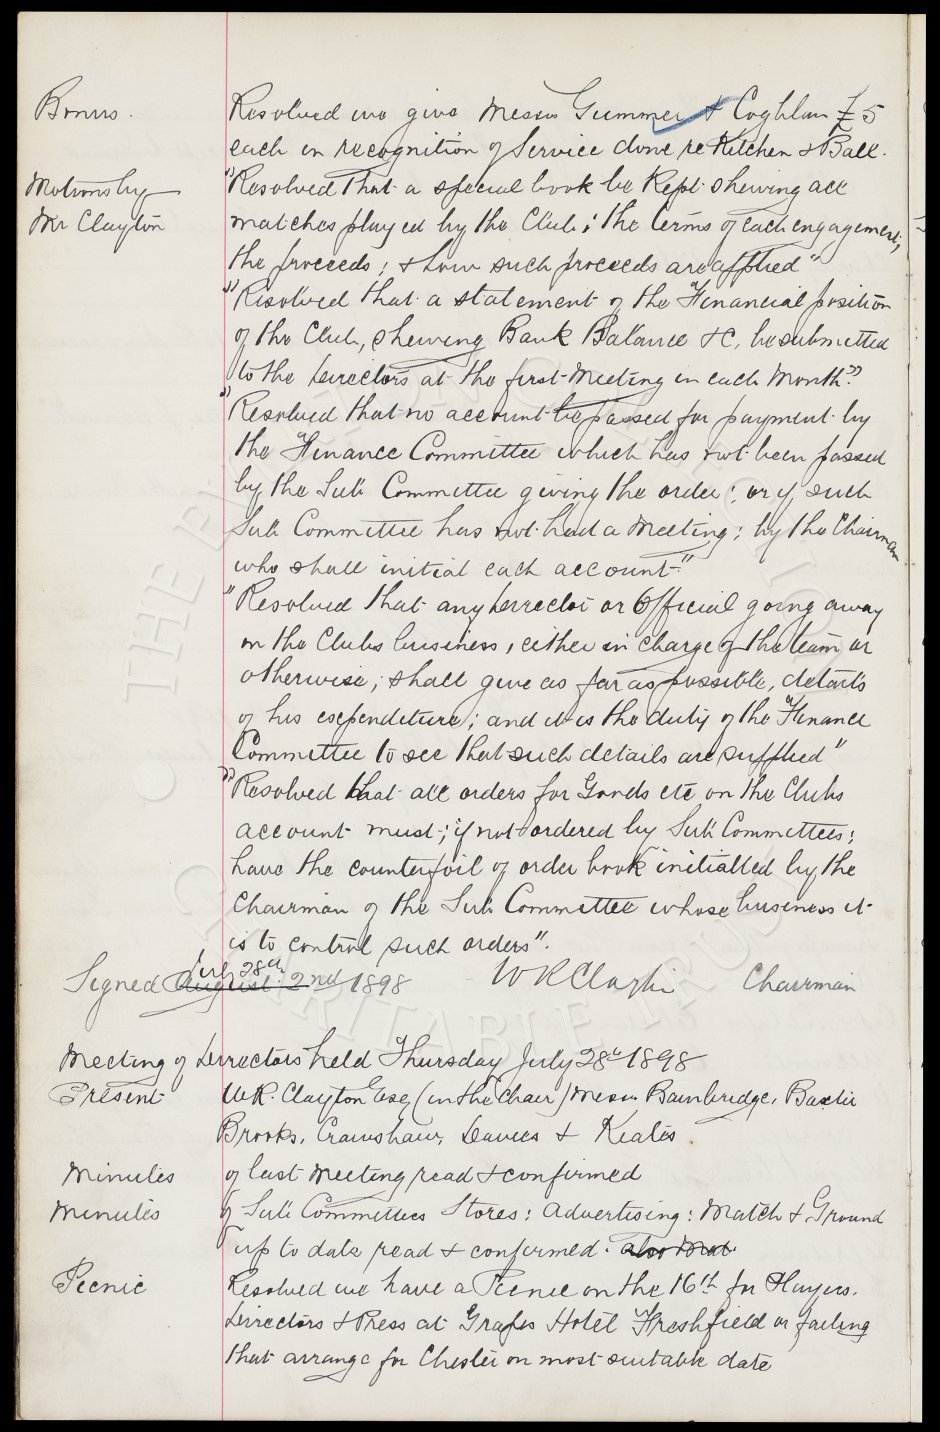 Bonus. Resolved we give Messrs Gummer & Coghlan £5
each in recognition of Service done re Kitchen & Ball.
Motions by "Resolved that a special book be kept shewing all
Mr Clayton matches played by the Club; the terms of each engagement;
the proceeds; & how such proceeds are applied"
"Resolved that a statement of the Financial position
of the Club, shewing Bank Balance &c, be submitted
to the Directors at the first Meeting in each Month."
"Resolved that no account be passed for payment by
the Finance Committee which has not been passed
by the Sub Committee giving the order; or if such
Sub Committee has not had a Meeting; by the Chairman
who shall initial each account."
"Resolved that any Director or Official going away
on the Clubs business, either in charge of the team or
otherwise; shall give as far as possible, details
of his expenditure; and it is the duty of the Finance
Committee to see that such details are supplied"
"Resolved that all orders for Goods etc on the Clubs
account must; if not ordered by Sub Committees;
have the counterfoil of order book initialled by the
Chairman of the Sub Committee whose business it
is to control such orders".
July 28th
Signed August 2nd 1898 W R Clayton Chairman
Meeting of Directors held Thursday July 28th 1898
Present W.R. Clayton Esq (in the Chair) Messrs Bainbridge, Baxter
Brooks, Crawshaw, Davies & Keates.
Minutes of last Meeting read & confirmed
Minutes of Sub Committees Stores: Advertising: Match & Ground
up to date read & confirmed. also that
Picnic Resolved we have a Picnic on the 16th for Players.
Directors & Press at Grapes Hotel Freshfield or failing
that arrange for Chester on most suitable date